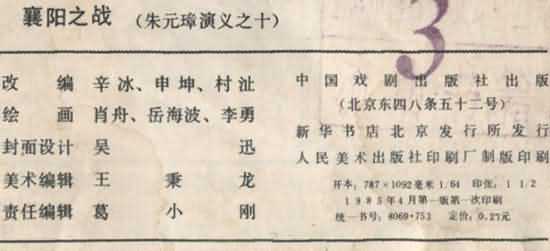 襄阳之战 (朱元璋演义之十)
改编 辛冰、申坤、村沚
绘画 肖舟、岳海波、李勇
封面设计 吴迅
美术编辑 王秉龙
责任编辑 葛小刚
中国戏剧出版社出版
(北京东四八条五十二号)
新华书店北京发行所发行
人民美术出版社印刷厂制版印刷
开本：787×1092毫米 1/64 印张：1 1/2
1985年4月第一版第一次印刷
统一书号：8069·753 定价：0.27元
3